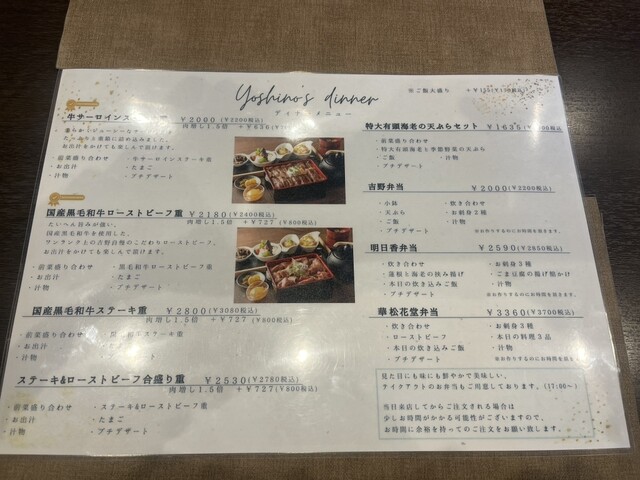 Yoshino's dinner
ディナーメニュー
※ご飯大盛り
牛サーロインステーキ重 ￥2000 (￥2200税込)
肉増し1.5倍
お出汁をかけても楽しんで頂けます。
・前菜盛り合わせ ・牛サーロインステーキ重
・お出汁 ・たまご
・汁物 ・プチデザート
国産黒毛和牛ローストビーフ重 ￥2180 (￥2400税込)
肉増し1.5倍 ＋￥727 (￥800税込)
たいへん旨みが強い、
国産黒毛和牛を使用した、
ワンランク上の吉野自慢のこだわりローストビーフ。
お出汁をかけても楽しんで頂けます。
・前菜盛り合わせ ・黒毛和牛ローストビーフ重
・お出汁 ・たまご
・汁物 ・プチデザート
国産黒毛和牛ステーキ重 ￥2800 (￥3080税込)
肉増し1.5倍 ＋￥727 (￥800税込)
・前菜盛り合わせ
・お出汁 ・たまご
・汁物 ・プチデザート
ステーキ&ローストビーフ合盛り重 ￥2530 (￥2780税込)
肉増し1.5倍 ＋￥727 (￥800税込)
・前菜盛り合わせ ・ステーキ&ローストビーフ重
・お出汁 ・たまご
・汁物 ・プチデザート
特大有頭海老の天ぷらセット ￥1635
・前菜盛り合わせ
・特大有頭海老と季節野菜の天ぷら
・ご飯 ・汁物
・プチデザート
吉野弁当 ￥2000 (￥2200税込)
・小鉢 ・炊き合わせ
・天ぷら ・お刺身2種
・ご飯 ・汁物
・プチデザート ※お作りするのにお時間を頂きます。
明日香弁当 ￥2590 (￥2850税込)
・炊き合わせ ・お刺身3種
・蓮根と海老の挟み揚げ ・ごま豆腐の揚げ餡かけ
・本日の炊き込みご飯 ・汁物
・プチデザート ※お作りするのにお時間を頂きます。
華松花堂弁当 ￥3360 (￥3700税込)
・炊き合わせ ・お刺身3種
・ローストビーフ ・本日の料理3品
・本日の炊き込みご飯 ・汁物
・プチデザート ※お作りするのにお時間を頂きます。
見た目にも味にも鮮やかで美味しい、
テイクアウトのお弁当もご用意しております。(17:00～)
当日来店してからご注文される場合は
少しお時間がかかる可能性がございますので、
お時間に余裕を持ってのご注文をお願い致します。